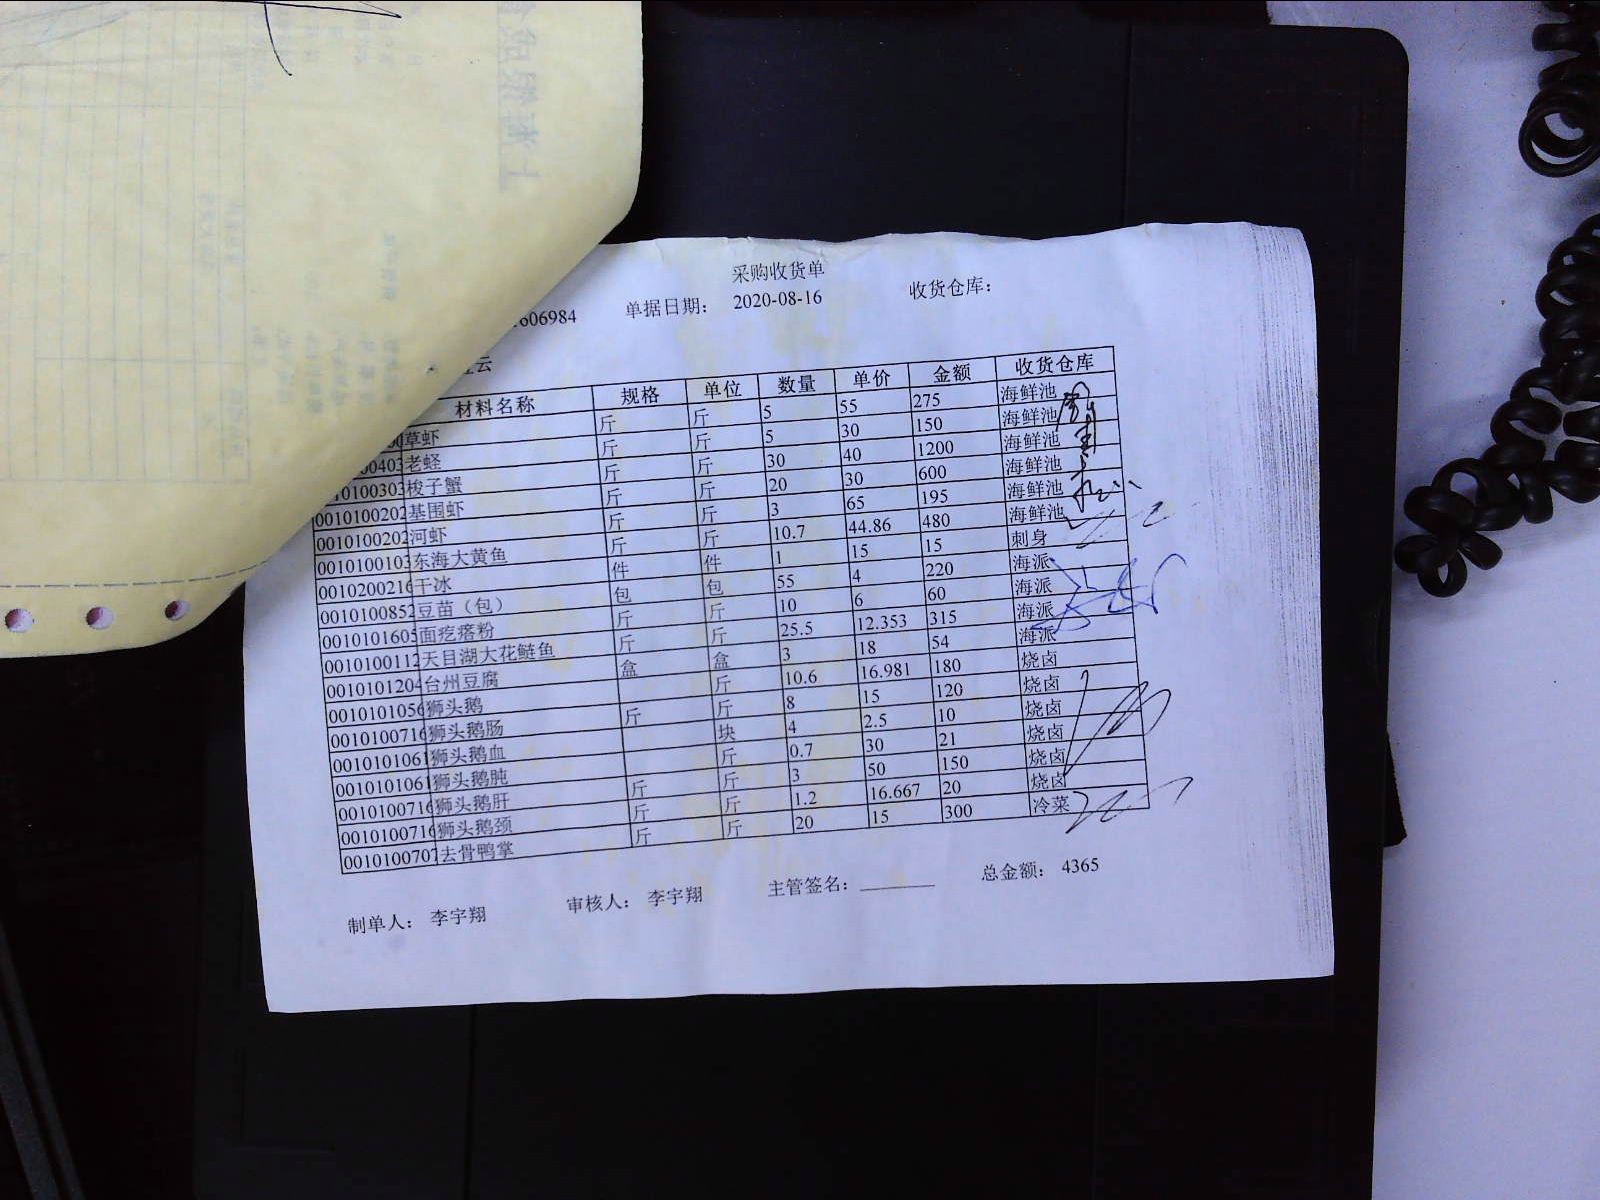 采购收货单
1606984 单据日期： 2020-08-16 收货仓库：
云
材料名称 规格 单位 数量 单价 金额 收货仓库
草虾 斤 斤 5 55 275 海鲜池
00403 老蛏 斤 斤 5 30 150 海鲜池
0100303 梭子蟹 斤 斤 30 40 1200 海鲜池
0010100202 基围虾 斤 斤 20 30 600 海鲜池
0010100202 河虾 斤 斤 3 65 195 海鲜池
0010100103 东海大黄鱼 斤 斤 10.7 44.86 480 海鲜池
0010200216 干冰 件 件 1 15 15 刺身
0010100852 豆苗（包） 包 包 55 4 220 海派
0010101605 面疙瘩粉 斤 斤 10 6 60 海派
0010100112 天目湖大花鲢鱼 斤 斤 25.5 12.353 315 海派
0010101204 台州豆腐 盒 盒 3 18 54 海派
0010101056 狮头鹅 斤 10.6 16.981 180 烧卤
0010100716 狮头鹅肠 斤 斤 8 15 120 烧卤
0010101061 狮头鹅血 块 4 2.5 10 烧卤
0010101061 狮头鹅肫 斤 0.7 30 21 烧卤
0010100716 狮头鹅肝 斤 斤 3 50 150 烧卤
0010100716 狮头鹅颈 斤 斤 1.2 16.667 20 烧卤
0010100707 去骨鸭掌 斤 斤 20 15 300 冷菜
制单人： 李宇翔 审核人： 李宇翔 主管签名： 总金额： 4365